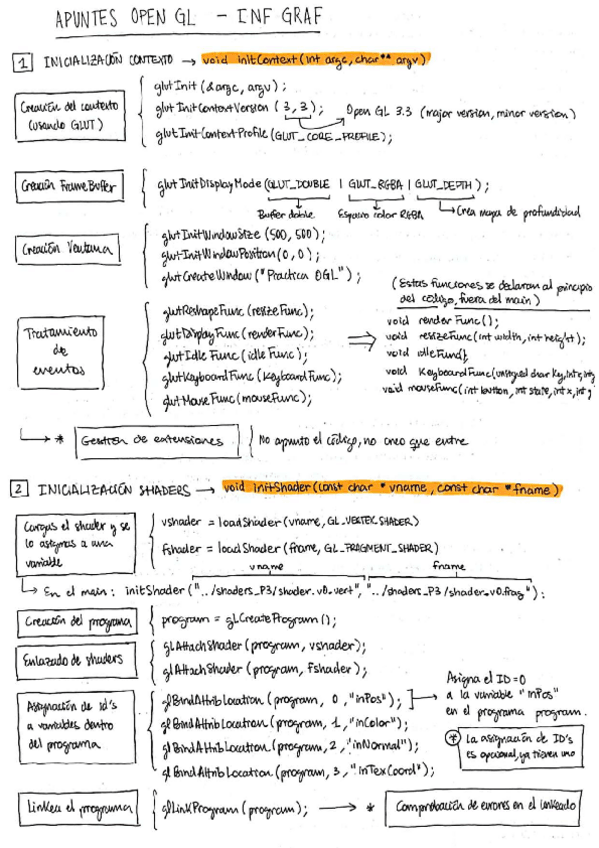 APUNTES OPEN GL - INF GRAF
1 INICIALIZACIÓN CONTEXTO → void initContext(int argc, char** argv)
Creación del contexto
(usando GLUT)
glutInit(&argc, argv);
glutInitContextVersion (3,3); Open GL 3.3 (major version, minor version)
glutInitContextProfile(GLUT_CORE_PROFILE);
Creación FrameBuffer
glutInitDisplayMode(GLUT_DOUBLE | GLUT_RGBA | GLUT_DEPTH);
Buffer doble Espacio color RGBA Crea mapa de profundidad
Creación Ventana
glutInitWindowSize (500,500);
glutInitWindowPosition(0,0);
glutCreateWindow("Practica OGL");
Tratamiento
de
eventos
glutReshapeFunc(resizeFunc);
glutDisplayFunc(renderFunc);
glutIdleFunc(idleFunc);
glutKeyboardFunc(KeyboardFunc);
glutMouseFunc(mouseFunc);
(Estas funciones se declaran al principio
del código, fuera del main)
void renderFunc();
void resizeFunc(int width, int height);
void idleFunc();
void KeyboardFunc(unsigned char key, int x, int y
void mouseFunc(int button, int state, int x, int y
* Gestión de extensiones No apunto el código, no creo que entre
2 INICIALIZACIÓN SHADERS → void initShader(const char * vname, const char * fname)
Cargas el shader y se
lo asignas a una
variable
vshader = loadShader(vname, GL_VERTEX_SHADER)
fshader = loadShader(fname, GL_FRAGMENT_SHADER)
vname fname
En el main: initShader("../shaders_P3/shader.v0.vert", "../shaders_P3/shader.v0.frag");
Creación del programa
program = glCreateProgram();
Enlazado de shaders
glAttachShader(program, vshader);
glAttachShader(program, fshader);
Asignación de id's
a variables dentro
del programa
glBindAttribLocation(program, 0, "inPos");
glBindAttribLocation(program, 1, "inColor");
glBindAttribLocation(program, 2, "inNormal");
glBindAttribLocation(program, 3, "inTexCoord");
Asigna el ID=0
a la variable "inPos"
en el programa program.
* La asignación de ID's
es opcional, ya tienen uno
Linkea el programa
glLinkProgram(program); → * Comprobación de errores en el linkeado